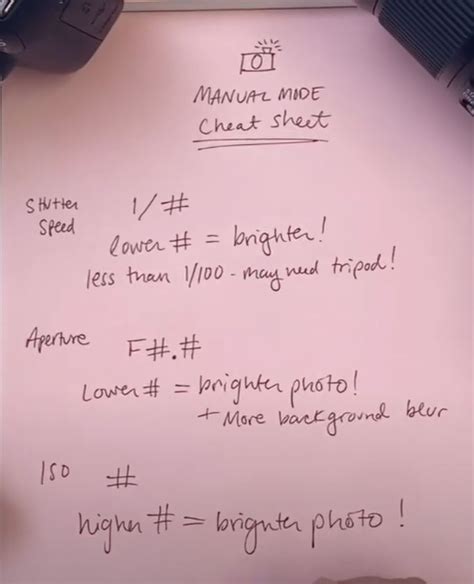 MANUAL MODE
Cheat sheet
Shutter Speed 1/#
lower # = brighter!
less than 1/100 - may need tripod!
Aperture F#.#
Lower # = brighter photo!
+ More background blur
ISO #
higher # = brighter photo!